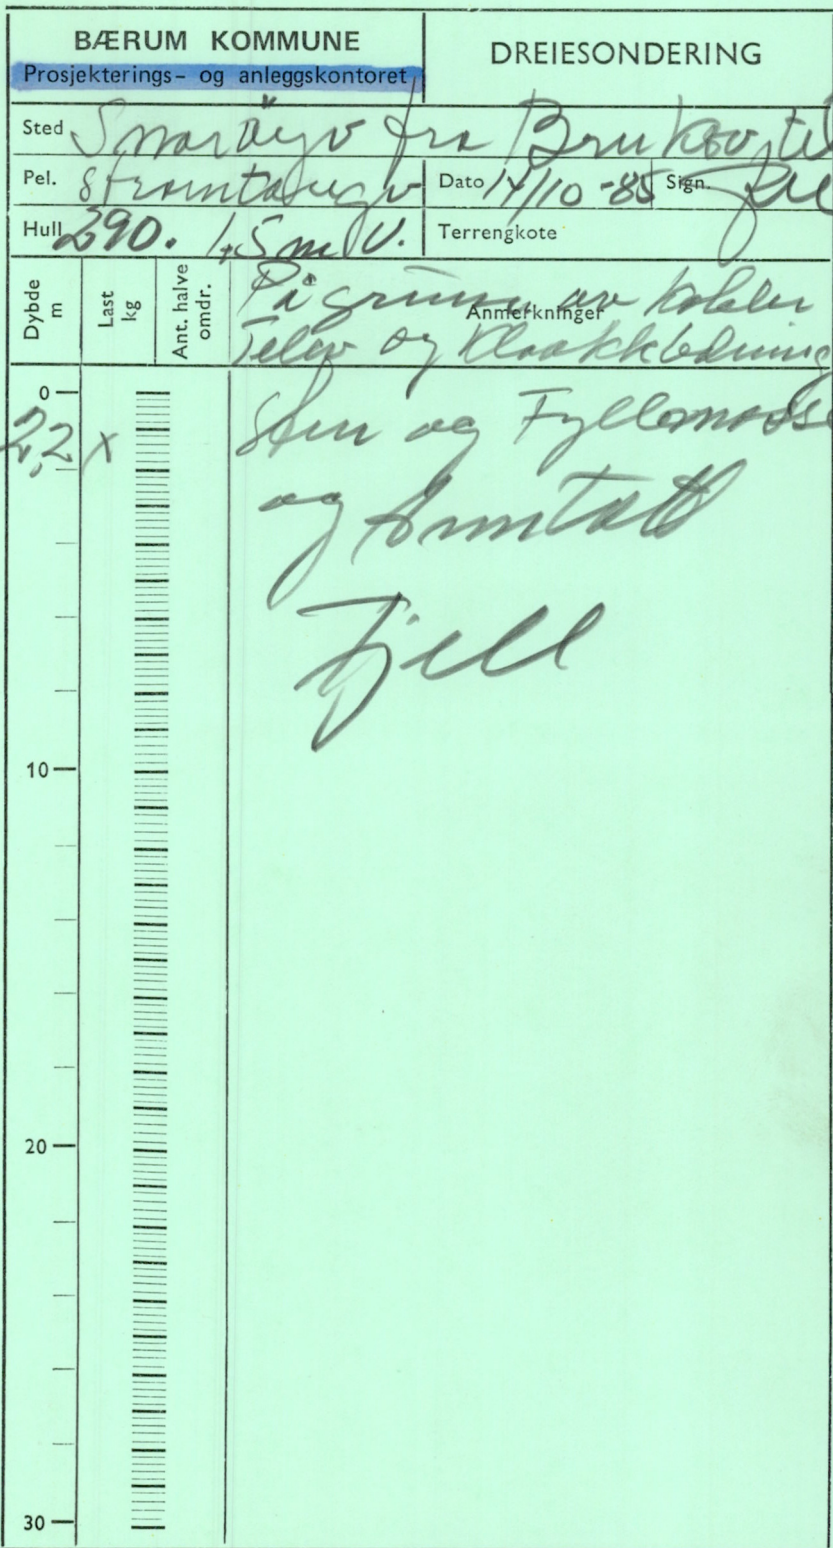 BÆRUM KOMMUNE
Prosjekterings- og anleggskontoret
DREIESONDERING
Sted Snarøyv fra Bruksv til
Pel. Stromtangv
Dato 14/10-85 Sign.
Hull 290. 1,5 m V.
Terrengkote
Dybde m
Last kg
Ant. halve omdr.
Anmerkninger
På grunn av kabler
Telev og Kloakkledning
0
2,2 x
Sten og Fyllemasse
og Anntatt
Fjell
10
20
30